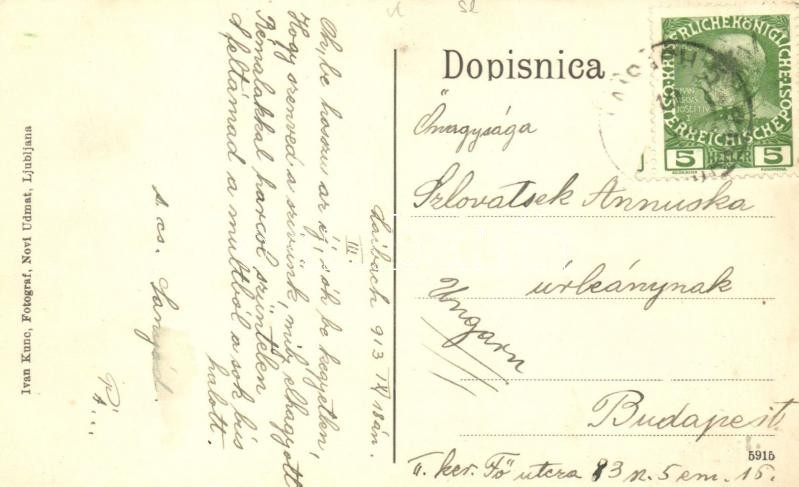 Dopisnica
Őnagysága
Szlovatsek Annuska
úrleánynak
Ungarn
Budapest
II. ker. Fő utcza 83 sz. 5 em. 15.
5915
K.K. ÖST.
5 HELLER 5
Laibach 913 IX 18án.
III.
Ah, be hosszu az éj, s óh be kegyetlen,
Hogy szenved a szivünk, mily elhagyott
Rémalakkal harcol szüntelen
S feltámad a multból a sok bús
halott.
s. cs. Sanyid.
Ivan Kunc, Fotograf, Novi Udmat, Ljubljana